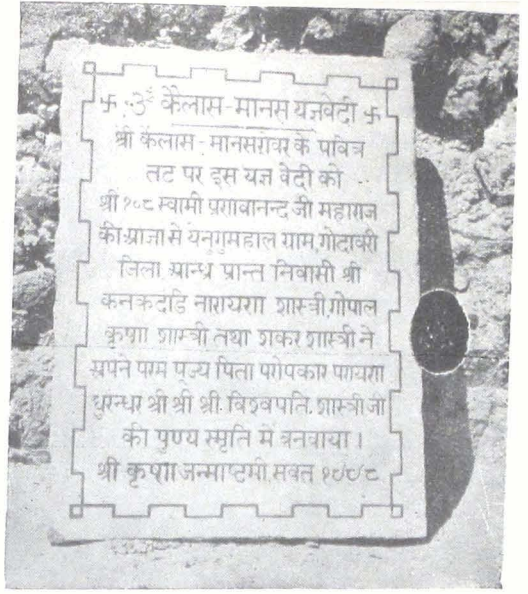 卐 ॐ कैलास-मानस यज्ञवेदी 卐
श्री कैलास-मानसरोवर के पवित्र
तट पर इस यज्ञ वेदी को
श्री १०८ स्वामी प्रणवानन्द जी महाराज
की आज्ञा से यनुगुमहाल ग्राम, गोदावरी
जिला आन्ध्र प्रान्त निवासी श्री
कनकदंडि नारायण शास्त्री, गोपाल
कृष्ण शास्त्री तथा शंकर शास्त्री ने
अपने परम पूज्य पिता परोपकार परायण
धुरन्धर श्री श्री श्री विश्वपति शास्त्री जी
की पुण्य स्मृति में बनवाया ।
श्री कृष्ण जन्माष्टमी, संवत